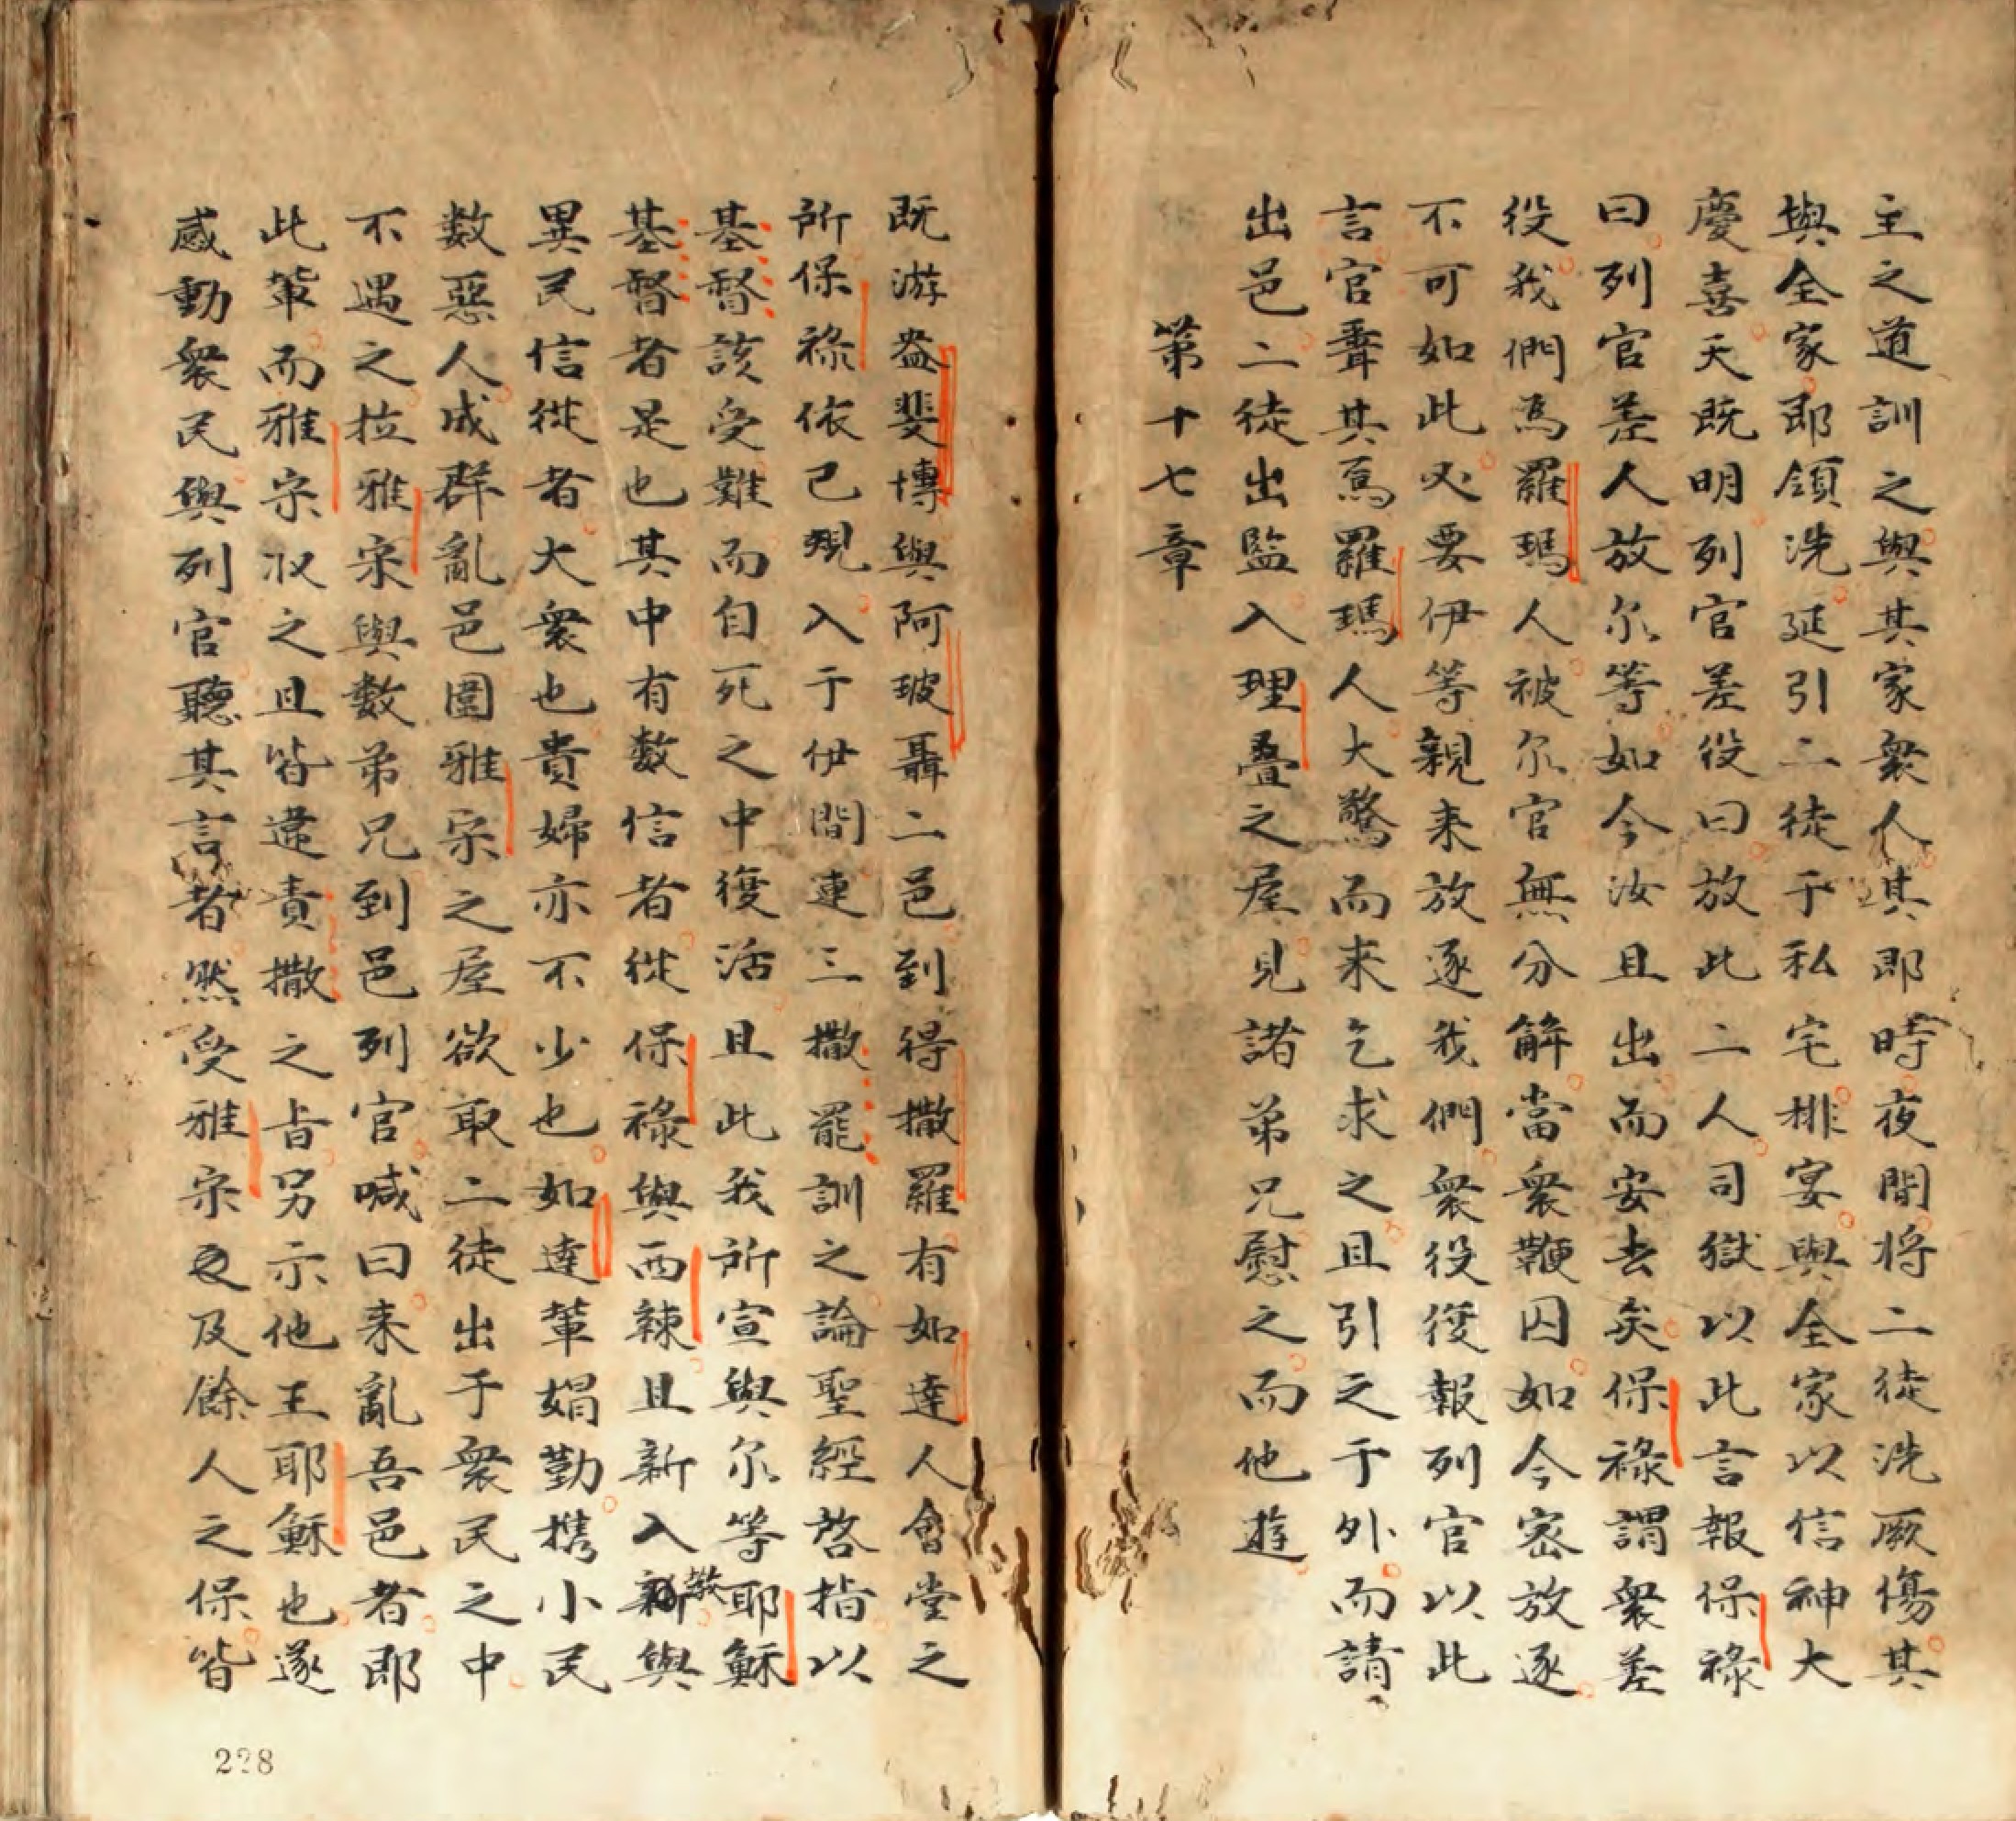 主之道訓之與其家衆人其即時夜間将二徒洗厥傷其
與全家即領洗延引二徒于私宅排宴與全家以信神大
慶喜天既明列官差役曰放此二人司獄以此言報保祿
曰列官差人放尔等如今汝且出而安去矣保祿謂衆差
役我們為羅瑪人被尔官無分解當衆鞭囚如今密放逐
不可如此必要伊等親来放逐我們衆役復報列官以此
言官聾其為羅瑪人大驚而来乞求之且引之于外而請
出邑二徒出監入理疊之屋見諸弟兄慰之而他遊
第十七章
既游盎斐博與阿玻聶二邑到得撒羅有如達人會堂之
所保祿依已規入于伊間連三撒罷訓之論聖經啓指以
基督該受難而自死之中復活且此我所宣與尔等耶穌
基督者是也其中有数信者從保祿與西辣且新入教與
異民信從者大衆也貴婦亦不少也如達輩媢勤携小民
数惡人成群亂邑圍雅宗之屋欲取二徒出于衆民之中
不遇之拉雅宗與数弟兄到邑列官喊曰来亂吾邑者即
此輩而雅宗收之且皆違責撒之旨另示他王耶穌也遂
感動衆民與列官聽其言者然受雅宗及餘人之保皆
228